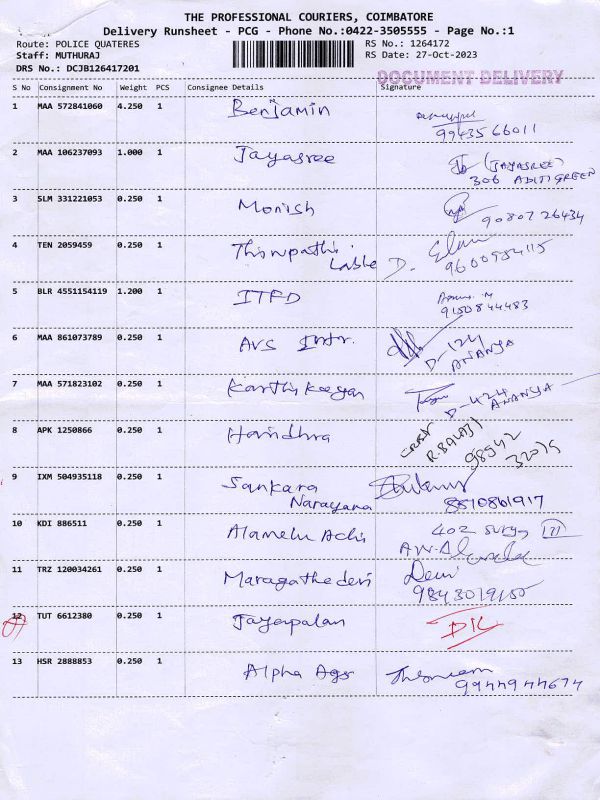 THE PROFESSIONAL COURIERS, COIMBATORE
Delivery Runsheet - PCG - Phone No.:0422-3505555 - Page No.:1
Route: POLICE QUATERES RS No.: 1264172
Staff: MUTHURAJ RS Date: 27-Oct-2023
DRS No.: DCJB126417201
DOCUMENT DELIVERY
S No Consignment No Weight PCS Consignee Details Signature
1 MAA 572841060 4.250 1 Benjamin
9943566011
2 MAA 106237093 1.000 1 Jayasree (JAYASREE)
306 ADITI GREEN
3 SLM 331221053 0.250 1 Monish
9080726434
4 TEN 2059459 0.250 1 Thirupathi
Labbe D.
9600984115
5 BLR 4551154119 1.200 1 ITFD
9150844483
6 MAA 861073789 0.250 1 AVS Intr. D-124
ANANYA
7 MAA 571823102 0.250 1 Karthikeeyan D-424
ANANYA
8 APK 1250866 0.250 1 Haridhra
R. BALAJI
98542
32015
9 IXM 504935118 0.250 1 Sankara
Narayana 8510861917
10 KDI 886511 0.250 1 Alamelu Achi 402 Surya
11 TRZ 120034261 0.250 1 Maragathedevi Devi
9843019150
12 TUT 6612380 0.250 1 Jayapalan DIL
13 HSR 2888853 0.250 1 Alpha Ags
9944944674